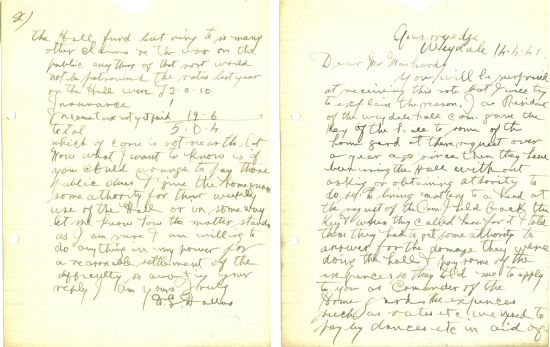 Weydale 14.4.41
Dear Mr
You will be surprised
at receiving this note but I will try
to explain the reason. I as President
of the Weydale hall com. gave the
key of the hall to some of the
home gard at their request over
a year ago since then they have
been using the Hall without
asking or obtaining authority to
do so. To bring matters to a head at
the request of the com. I held back the
key & when they called here for it I told
them they had to get some authority to
answer for the damage they were
doing the hall & pay some of the
expences so they told me to apply
to you as Comander of the
Home Gards the expences
such as rates etc we used to
pay by dances etc in aid of
2)
the Hall fund but owing to so many
other claims re the war on the
public any thing of that sort would
not be patronised the rates last year
on the Hall were £3.0.10
Insurance 1
Income tax not yet paid 19.6
total 5.0.4
which of corse is not nearth. lot
Now what I want to know is if
you could arange to pay those
public dues & give the home gard
some authority for their weekly
use of the Hall or in some way
let me know how the matter stands
as I am sure I am willing to
do anything in my power for
a reasonable settlement of the
difficulty so awaiting your
reply I am yours truly